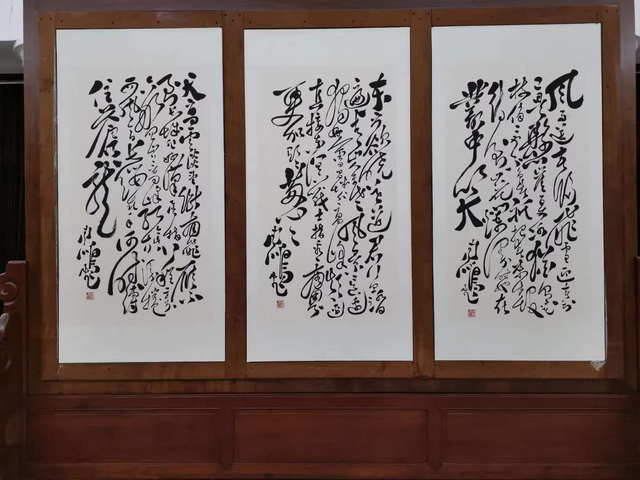 风雨送春归飞雪迎春到
已是悬崖百丈冰犹有花枝俏
俏也不争春只把春来报
待到山花烂漫时她在
丛中笑
东方欲晓莫道君行早踏
遍青山人未老风景这边
独好会昌城外高峰颠连
直接东溟战士指看南粤
更加郁郁葱葱
天高云淡望断南飞雁不
到长城非好汉屈指行程二万
六盘山上高峰红旗漫卷
西风今日长缨在手何时缚
住苍龙